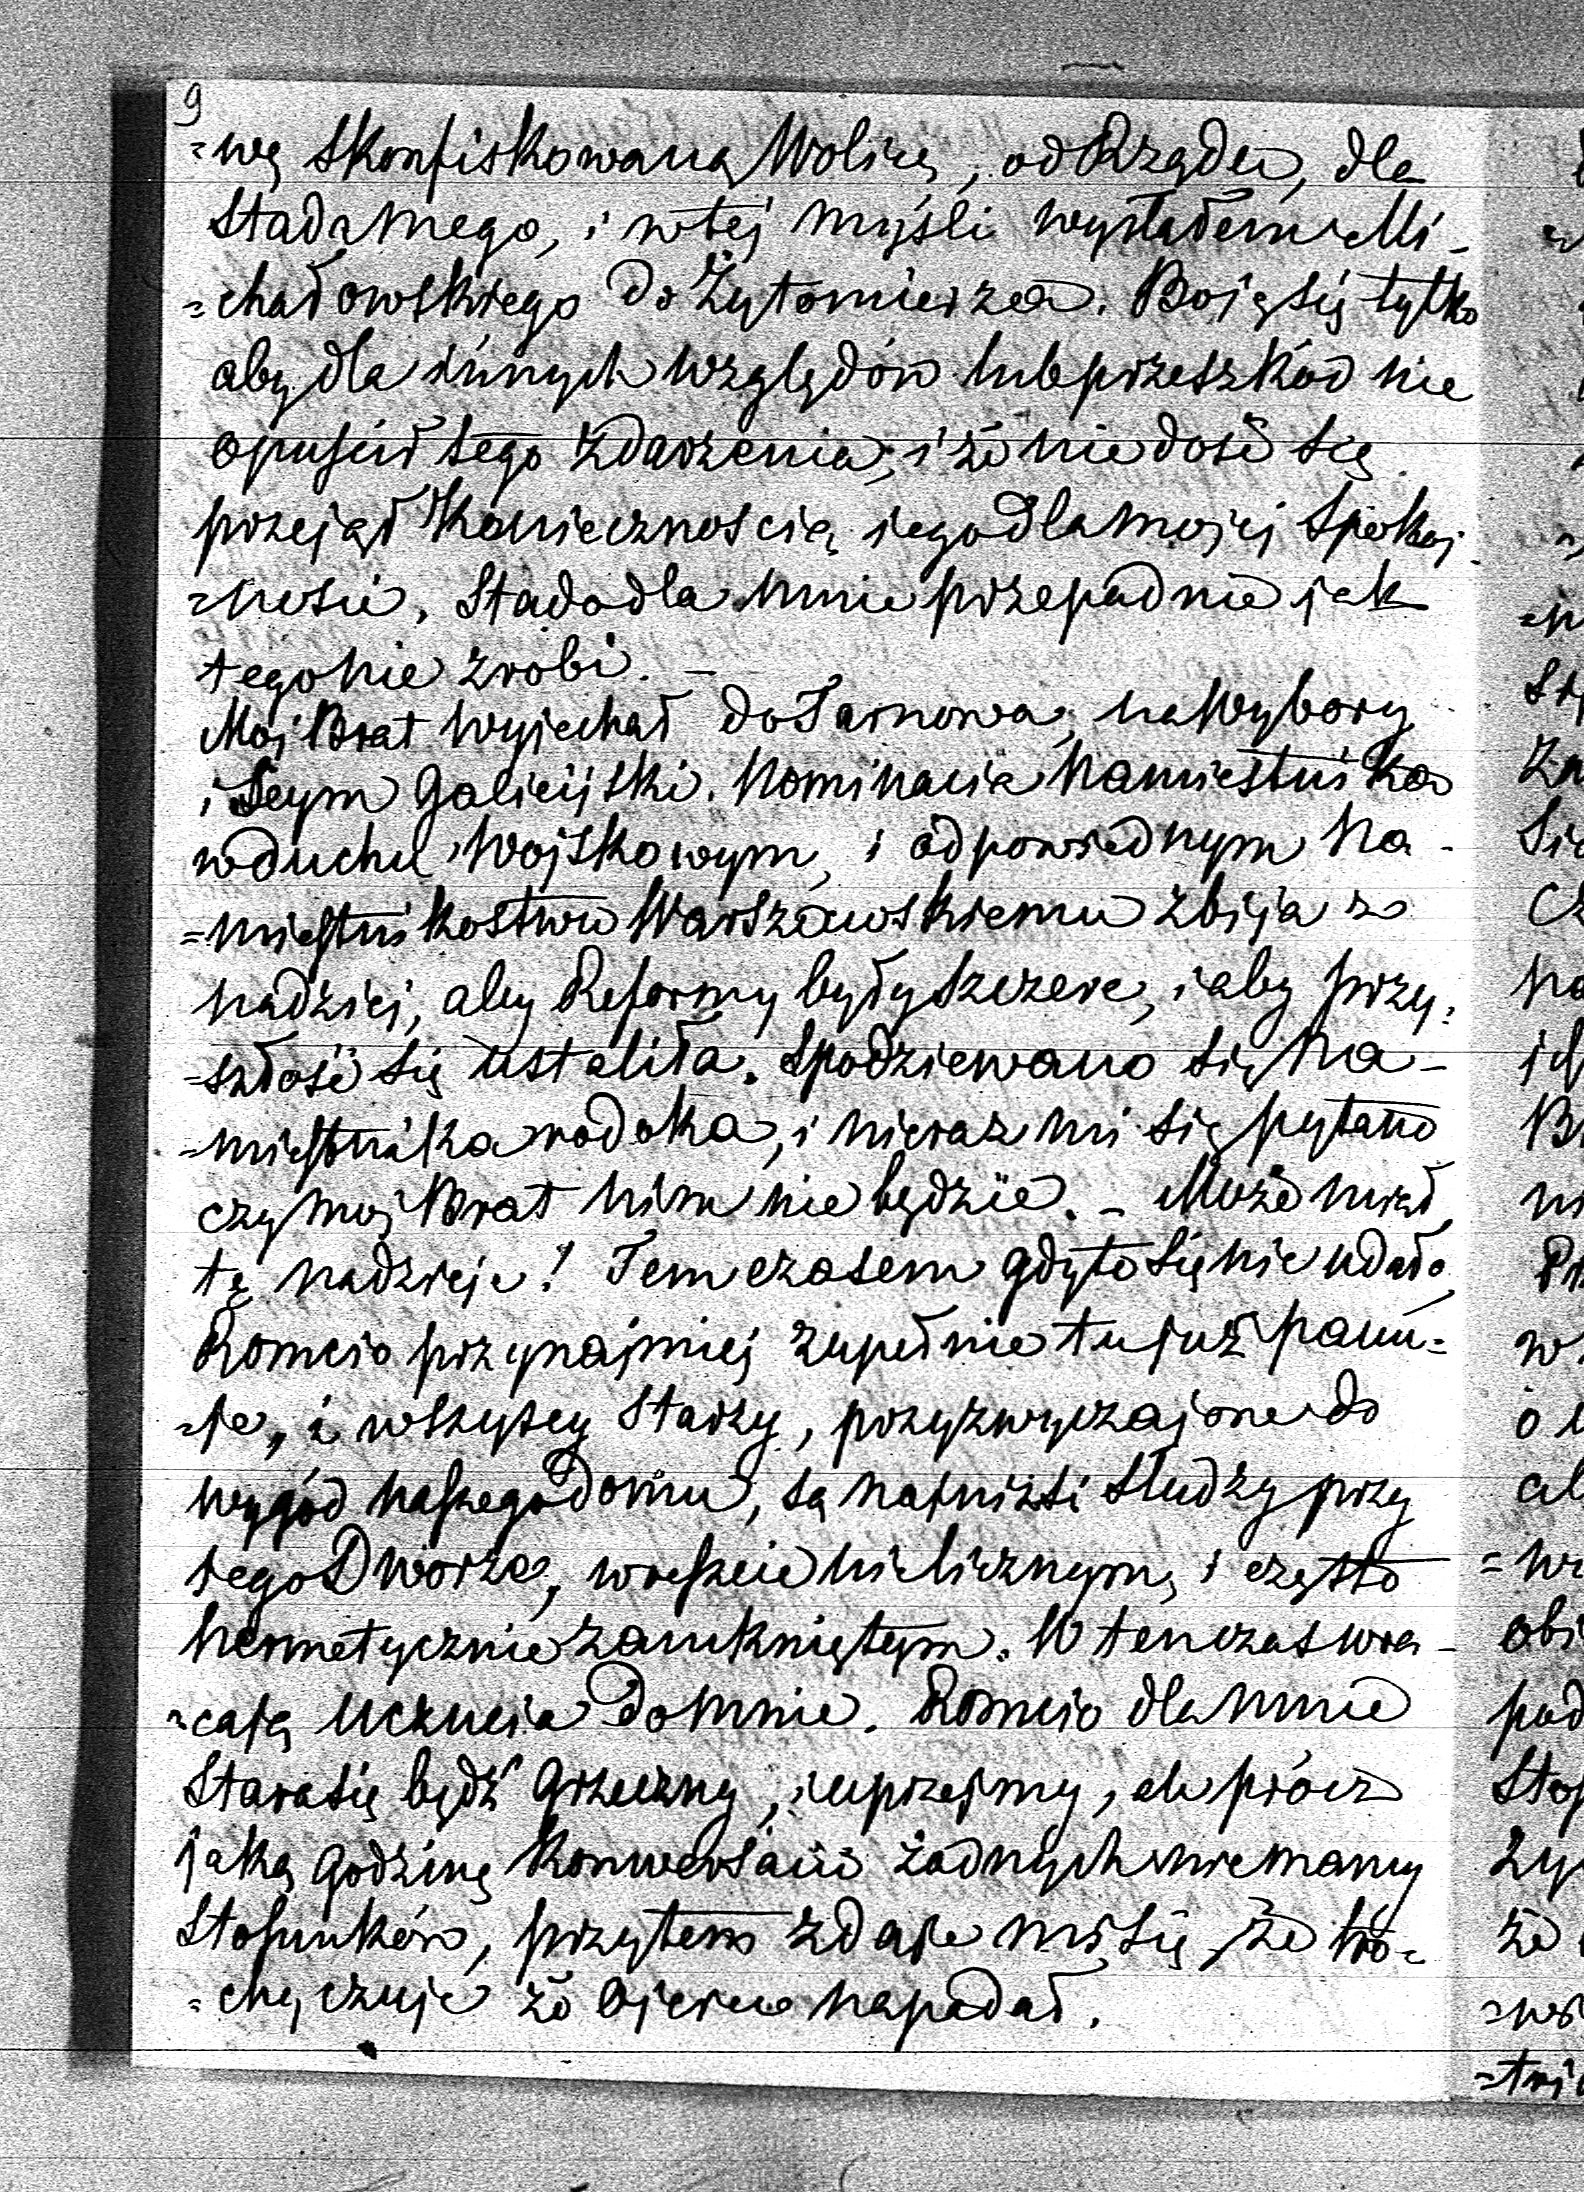 9
=wę skonfiskowaną Wolicę, od Rządu, dla
Stada mego, i w tej myśli wysłałem Mi-
=chałowskiego do Żytomierza. Boję się tylko
aby dla innych względów lub przeszkód nie
opuścił tego zdarzenia, i że nie dość się
przejął koniecznością jego dla mojej spokoj-
=ności. Stado dla mnie przepadnie jak
tego nie zrobi. –
Moj Brat wyjechał do Tarnowa, na wybory
i Seym Galicijski. Nominacia Namiestnika
w duchu wojskowym, i odpowiednym Na-
=miestnikostwu Warszawskiemu zbija z
nadziej, aby Reformy były szczere, i aby przy-
=szłość się ustaliła. Spodziewano się Na-
=miestnika rodaka, i nieraz mi się pytano
czy moj Brat nim nie będzie. – Może miał
tę nadzieje! Tem czasem gdy to się nie udało
Romcio przynajmiej zupełnie tu już panu=
=je, i wszyscy starzy, przyzwyczajone do
wygód naszego domu, są najniżsi słudzy przy
jego Dworze, wreszcie nielicznym, i często
hermetycznie zamkniętym. W ten czas wra-
=cają uczucia do mnie. Romcio dla mnie
stara się bydź grzeczny, i uprzejmy, ale prócz
jaką godzinę konwersacii żadnych nie mamy
stosunków, przytem zdaje mi się, że tro-
=chę czuje że Ojcu napadał.